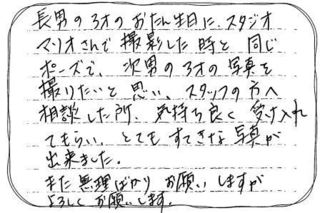 長男の3才のおたん生日に、スタジオ
マリオさんで撮影した時と同じ
ポーズで、次男の3才の写真を
撮りたいと思い、スタッフの方へ
相談した所、気持ち良く受け入れ
てもらい、とてもすてきな写真が
出来ました。
また無理ばかりお願いしますが
よろしくお願いします。